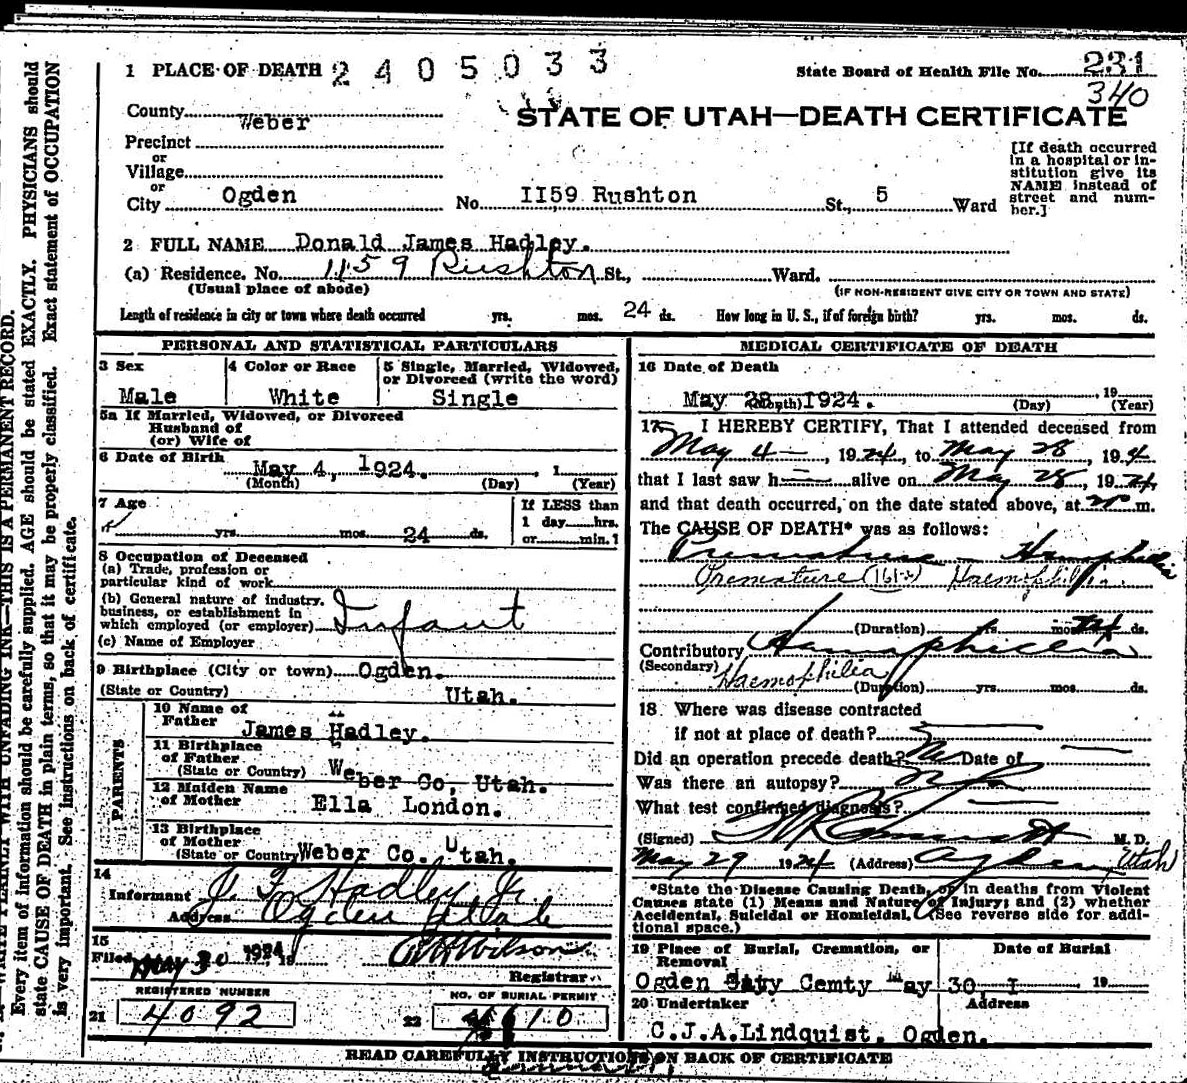 1 PLACE OF DEATH 2 4 0 5 0 3 3
State Board of Health File No. 231
340
County Weber
STATE OF UTAH—DEATH CERTIFICATE
Precinct
or
Village
or
City Ogden No. II59 Rushton St., 5 Ward
[If death occurred
in a hospital or in-
stitution give its
NAME instead of
street and num-
ber.]
2 FULL NAME Donald James Hadley.
(a) Residence. No. 1159 Rushton St., Ward.
(Usual place of abode)
(IF NON-RESIDENT GIVE CITY OR TOWN AND STATE)
Length of residence in city or town where death occurred yrs. mos. 24 ds. How long in U. S., if of foreign birth? yrs. mos. ds.
PERSONAL AND STATISTICAL PARTICULARS
3 Sex
Male
4 Color or Race
White
5 Single, Married, Widowed,
or Divorced (write the word)
Single
5a If Married, Widowed, or Divorced
Husband of
(or) Wife of
6 Date of Birth
May 4, 1924. , 1
(Month) (Day) (Year)
7 Age
yrs. mos. 24 ds.
If LESS than
1 day hrs.
or min.1
8 Occupation of Deceased
(a) Trade, profession or
particular kind of work
(b) General nature of industry.
business, or establishment in
which employed (or employer) Infant
(c) Name of Employer
9 Birthplace (City or town) Ogden.
(State or Country) Utah.
PARENTS
10 Name of
Father James Hadley.
11 Birthplace
of Father
(State or Country) Weber Co, Utah.
12 Maiden Name
of Mother Ella London.
13 Birthplace
of Mother
(State or Country Weber Co. Utah.
14
Informant J. F. Hadley Jr
Address Ogden Utah
15
Filed May 30 1924, 19
Wilson
Registrar
REGISTERED NUMBER
21 4092
NO. OF BURIAL PERMIT
22 610
MEDICAL CERTIFICATE OF DEATH
16 Date of Death
May 28, 1924. 19
(Month) (Day) (Year)
17 I HEREBY CERTIFY, That I attended deceased from
May 4 , 1924, to May 28 , 19 24
that I last saw h alive on May 28 , 19 24
and that death occurred, on the date stated above, at m.
The CAUSE OF DEATH* was as follows:
Premature - Hemophilia
Premature (161-a) Haemophilia
(Duration) yrs. mos. 24 ds.
Contributory Hemophilia
(Secondary) Haemophilia
(Duration) yrs. mos. ds.
18 Where was disease contracted
if not at place of death?
Did an operation precede death? No Date of
Was there an autopsy? No
What test confirmed diagnosis?
(Signed) M. D.
May 29 1924 (Address) Ogden, Utah
*State the Disease Causing Death, or in deaths from Violent
Causes state (1) Means and Nature of Injury; and (2) whether
Accidental, Suicidal or Homicidal. (See reverse side for addi-
tional space.)
19 Place of Burial, Cremation, or
Removal
Date of Burial
Ogden City Cemty May 30, I 19
20 Undertaker
Address
C.J.A.Lindquist. Ogden.
READ CAREFULLY INSTRUCTIONS ON BACK OF CERTIFICATE
WRITE PLAINLY WITH UNFADING INK—THIS IS A PERMANENT RECORD.
Every item of information should be carefully supplied. AGE should be stated EXACTLY. PHYSICIANS should
state CAUSE OF DEATH in plain terms, so that it may be properly classified. Exact statement of OCCUPATION
is very important. See instructions on back of certificate.